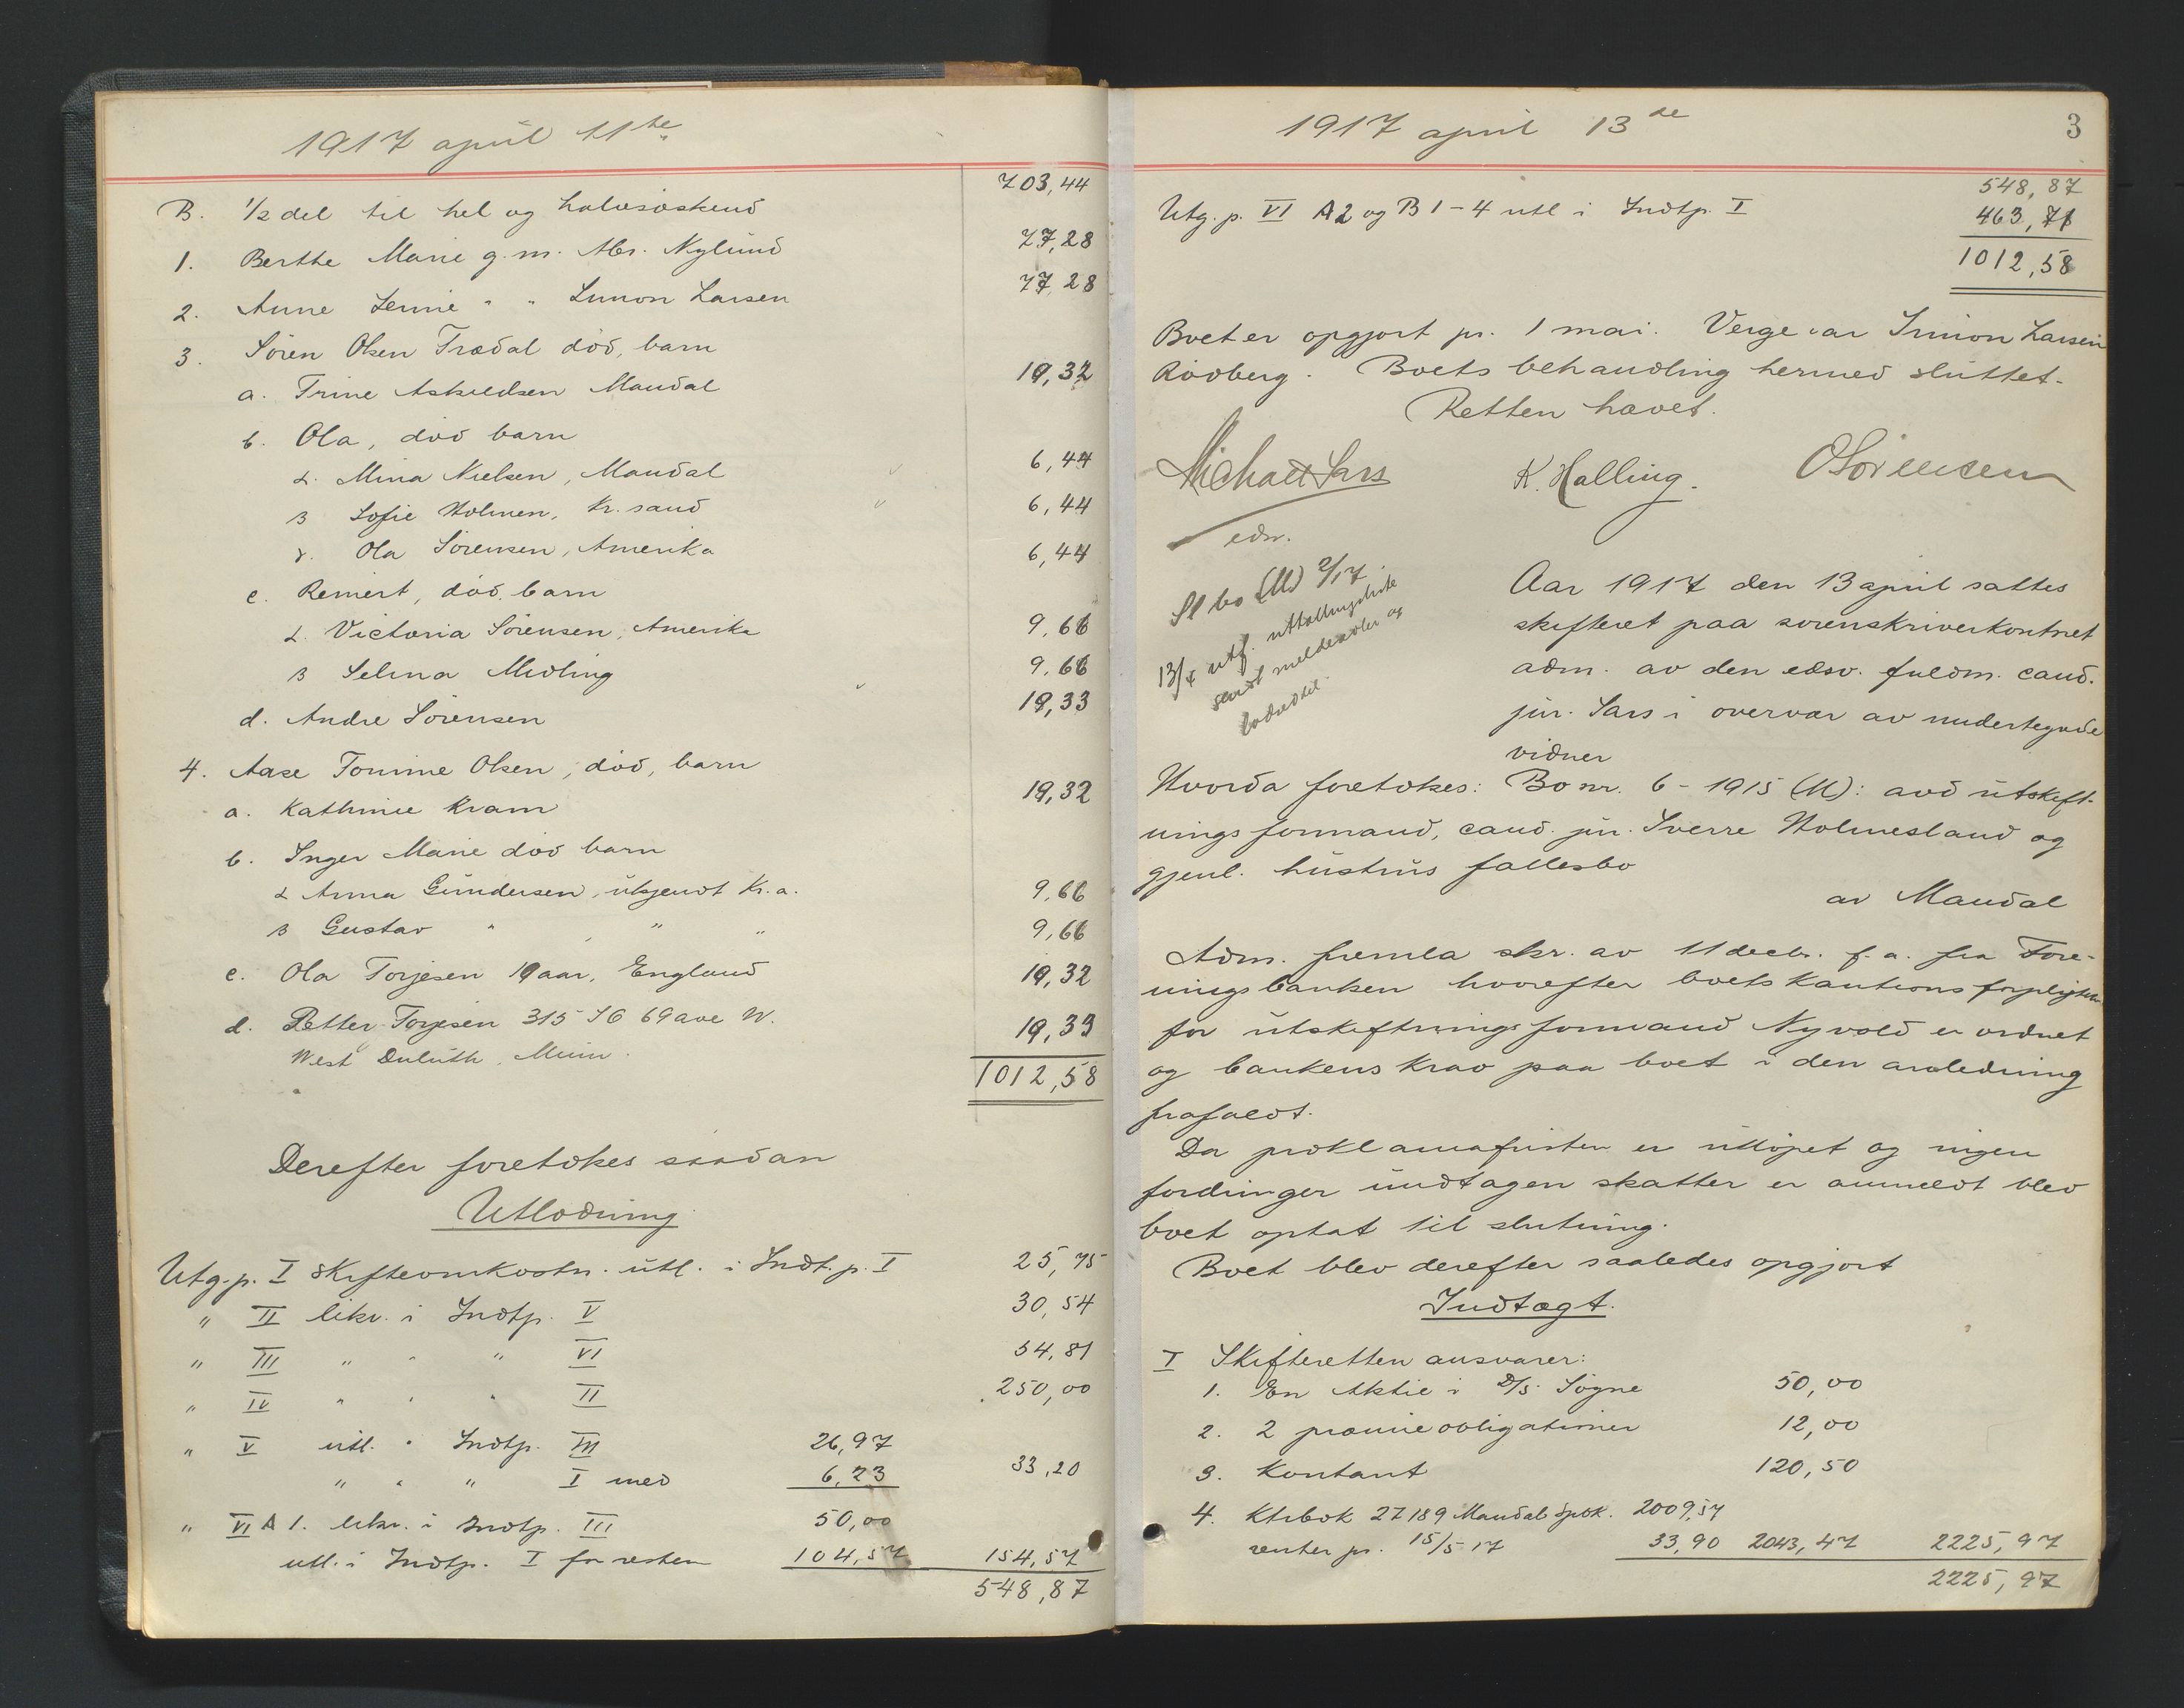 1917 april 11te
703,44
B. 1/2 del til hel og halvsøskend
1. Berthe Marie g.m. Abr. Nylund 77,28
2. Anne Lenie " " Simon Larsen 77,28
3. Sören Olsen Trædal död, barn
a. Trine Askildsen Mandal 19,32
b. Ola, död barn
α. Mina Nielsen, Mandal 6,44
β Sofie Holmen, Kr.sand 6,44
γ. Ola Sörensen, Amerika 6,44
c. Reinert, död, barn
α. Victoria Sörensen, Amerika 9,66
β Selma Midling 9,66
d. Andre Sörensen 19,33
4. Aase Tomine Olsen, död, barn
a. Kathinie Kram 19,32
b. Inger Marie död barn
α Anna Gundersen, ukjendt Kr.a. 9,66
β Gustav " " " 9,66
c. Ola Torjesen 19 aar, England 19,32
d. Petter Torjesen 315 S6 69 ave W. 19,33
West Duluth, Minn.
1012,58
Derefter foretokes saadan
Utlodning
Utg.p. I Skifteomkostn. utl. i Indt.p. I 25,75
" II likv. i Indtp. V 30,54
" III " " " VI 54,81
" IV " " " II 250,00
" V utl. " Indtp. III 26,97
" " " I med 6,23 33,20
" VI A 1. likv. i Indtp. III 50,00
utl. i Indtp. I for resten 104,57 154,57
548,87
1917 april 13de
3
548,87
Utg.p. VI A2 og B 1-4 utl i Indtp. I 463,71
1012,58
Boet er opgjort pr. 1 mai. Verge var Simon Larsen
Rödberg. Boets behandling hermed sluttet.
Retten hævet.
Michael Sars K. Halling. O Sörensen
edsv.
Sl bo (M) 2/17.
13/4 utf. uttallingsliste
sendt meldesedler og
bodsedtel.
Aar 1917 den 13 april sattes
skifteret paa sorenskriverkontoret
adm. av den edsv. fuldm. cand.
jur. Sars i overvær av undertegnede
vidner
Hvorda foretokes: Bo nr. 6 - 1915 (M): avd utskift-
nings formand, cand. jur. Sverre Holmesland og
gjenl. hustrus fællesbo
av Mandal
Adm. fremla skr. av 11 decbr. f.a. fra Fore-
ningsbanken hvorefter boets kautionsforpligtelse
for utskiftnings formand Nyvold er ordnet
og bankens krav paa boet i den anledning
frafaldt.
Da proklamafristen er utløpet og ingen
fordringer undtagen skatter er anmeldt blev
boet optat til slutning.
Boet blev derefter saaledes opgjort
Indtægt.
I Skifteretten ansvarer:
1. En Aktie i D/S Sögne 50,00
2. 2 præmieobligationer 12,00
3. Kontant 120,50
4. Ktrbok 27189 Mandals Spbk. 2009,57
renter pr. 15/5 17 33,90 2043,47 2225,97
2225,97